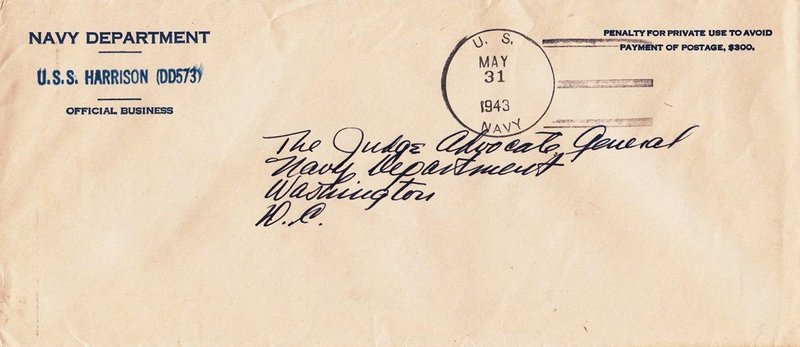 NAVY DEPARTMENT
U.S.S. HARRISON (DD573)
OFFICIAL BUSINESS
U. S.
MAY
31
1943
NAVY
PENALTY FOR PRIVATE USE TO AVOID
PAYMENT OF POSTAGE, $300.
The Judge Advocate General
Navy Department
Washington
D.C.